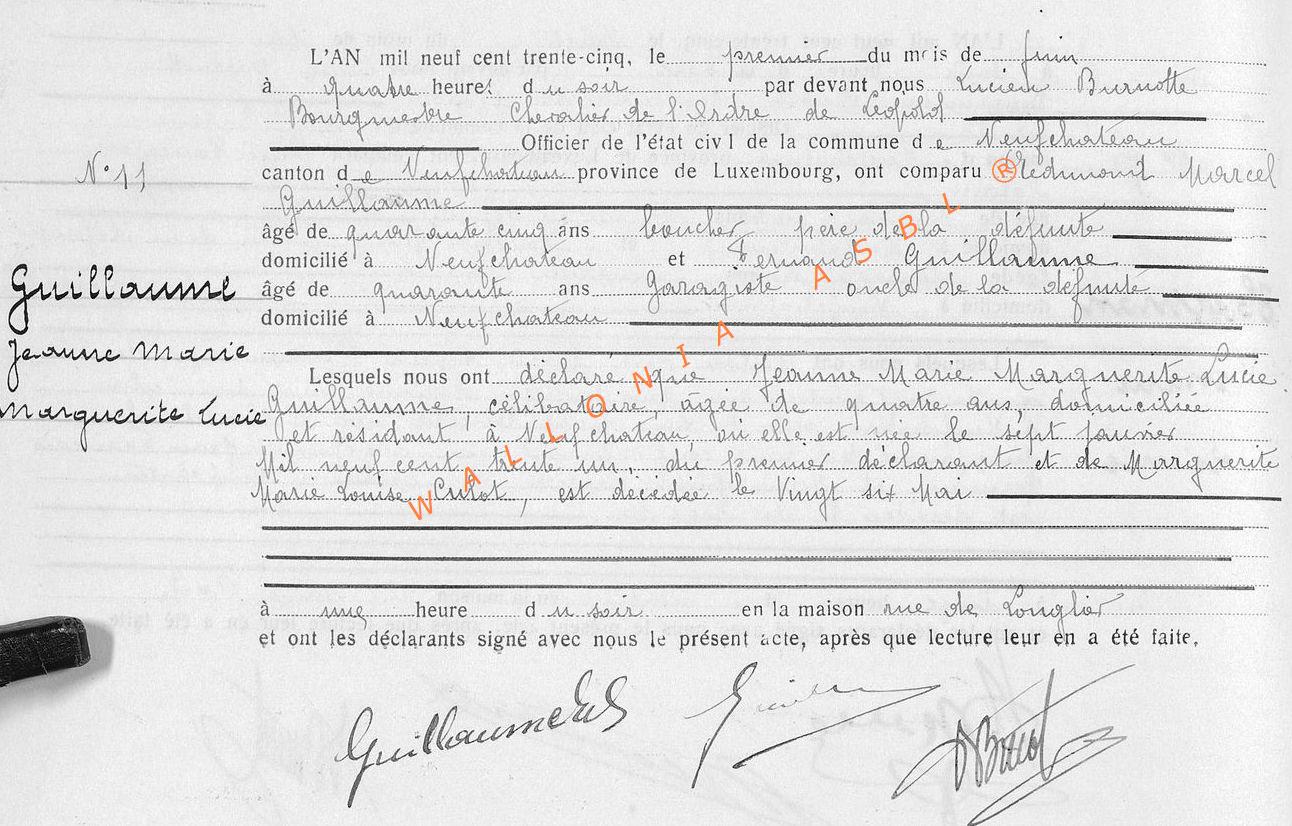 L'AN mil neuf cent trente-cinq, le premier du mois de Juin
à quatre heures du soir par devant nous Lucien Burnotte
Bourgmestre Chevalier de l'Ordre de Léopold
Officier de l'état civil de la commune de Neufchateau
N° 11
canton de Neufchateau province de Luxembourg, ont comparu Edmond Marcel
Guillaume
âgé de quarante cinq ans boucher père de la défunte
domicilié à Neufchateau et Fernand Guillaume
âgé de quarante ans Garagiste oncle de la défunte
domicilié à Neufchateau
Guillaume
Jeanne Marie
Marguerite Lucie
Lesquels nous ont déclaré que Jeanne Marie Marguerite Lucie
Guillaume, célibataire, âgée de quatre ans, domiciliée
et résidant à Neufchateau, où elle est née le sept janvier
Mil neuf cent trente un, du premier déclarant et de Marguerite
Marie Louise Culot, est décédée le Vingt six Mai
à une heure du soir en la maison rue de Longlier
et ont les déclarants signé avec nous le présent acte, après que lecture leur en a été faite.
WALLONIA ASBL ®
Guillaume